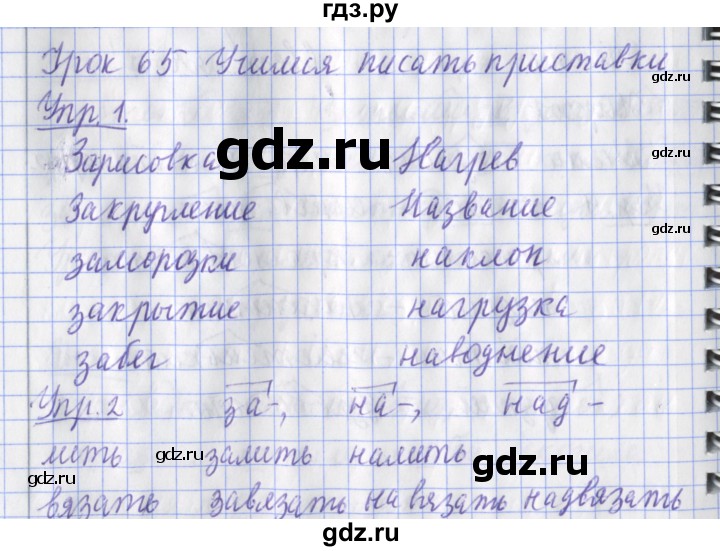 гдз.ру
Урок 65 Учимся писать приставки
gdz.ru
Упр. 1.
gdz.ru
Зарисовка Нагрев
gdz.ru
Закругление Название
gdz.ru
заморозки наклон
закрытие нагрузка
забег наводнение
gdz.ru
Упр. 2 за-, на-, над-
gdz.ru
лить залить налить
gdz.ru
gdz.ru
gdz.ru
вязать завязать навязать надвязать
gdz.ru